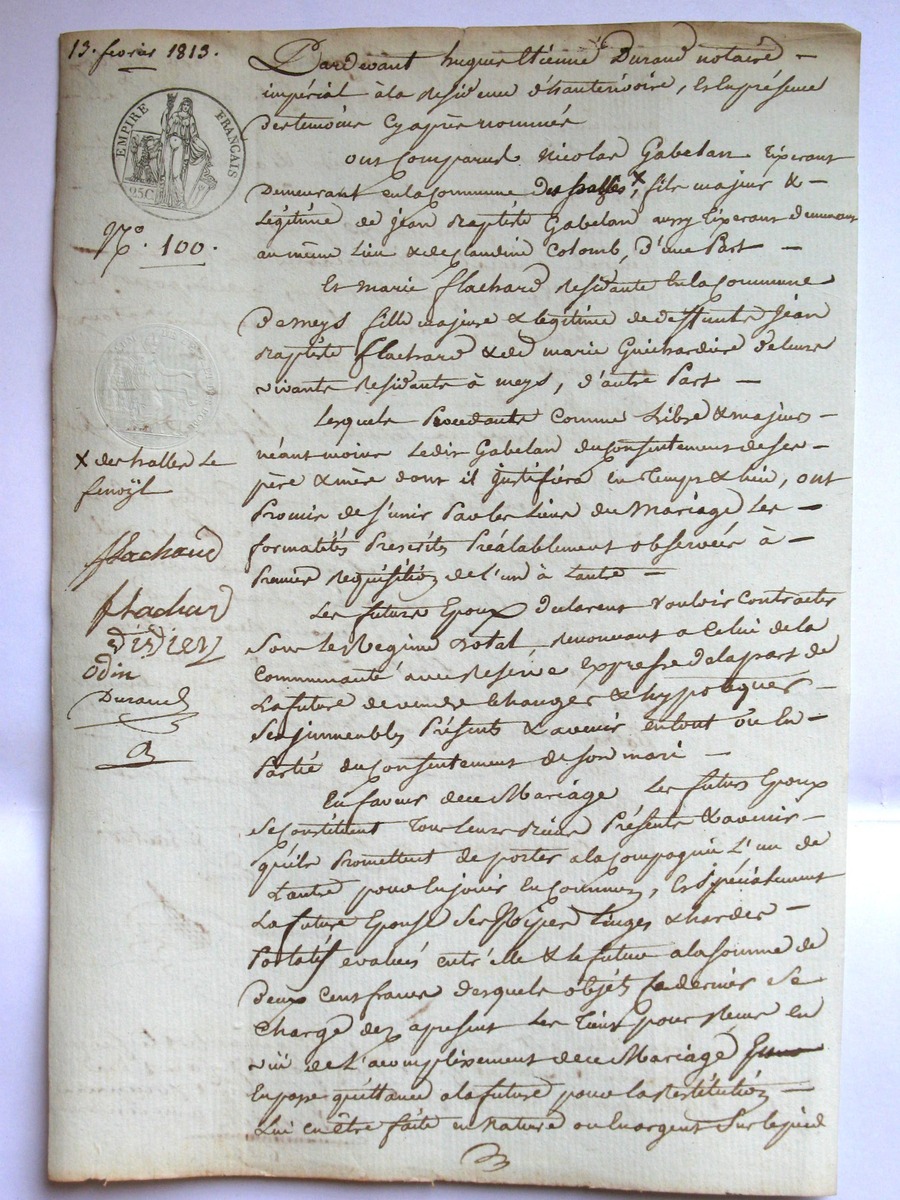 13. fevrier 1813.
EMPIRE FRANÇAIS
25C
N.° 100.
Pardevant hugues Etienne Durand notaire
impérial ala Residence d'hauterivoire, & En présence
Des temoins Cy après nommés
ont Comparus Nicolas Gabelan Tixerant
Demeurant en la Commune des halles X, fils majeur &
Légitime de jean Baptiste Gabelan aussy Tixerant demeurant
au même Lieu & de Claudine Colomb, D'une Part
Et marie flachard Residante En la Commune
De meys fille majeure & légitime de deffunts Jean
Baptiste flachard & de marie Guichardire de leurs
vivants Residants à meys, d'autre Part
Lesquels Procedants Comme Libres & majeurs
néantmoins Ledit Gabelan du Consentement de ses
père & mère dont il justifiera En Temps & lieu, ont
Promis de S'unir Par les Liens du Mariage Les
formalités Prescrites Préalablement observées à
Premier Requisition de l'un à L'autre
Les futurs Epoux Déclarent vouloir Contracter
Sous le Regime Dotal, Renonçant a Celui de la
Communauté avec Reserve Expresse de la part de
La future de vendre Echanger & hypotequer
Ses immeubles Présents & avenir en tout ou En
Partie du Consentement de Son mari
En faveur de ce Mariage Les futurs Epoux
Se Constituent Tous Leurs Biens Présents & avenir
qu'ils Promettent de porter a la Compagnie L'un de
L'autre pour En jouir En Commun, Et Spécialement
La future Epouse Ses Nipes Linges & hardes
Portatifs évalués entr'elle & le futur a la Somme de
Deux Cent francs Desquels objets Ce dernier Se
Charge dez apresent Les Tient pour Reçus En
vüe de L'acomplissement de ce Mariage
En passe quittance a la future pour La Restitution
Lui en être faite en Nature ou En argent Sur le pied
X des halles Le
fenoÿl
flachard
flachard
Didier
Odin
Durand